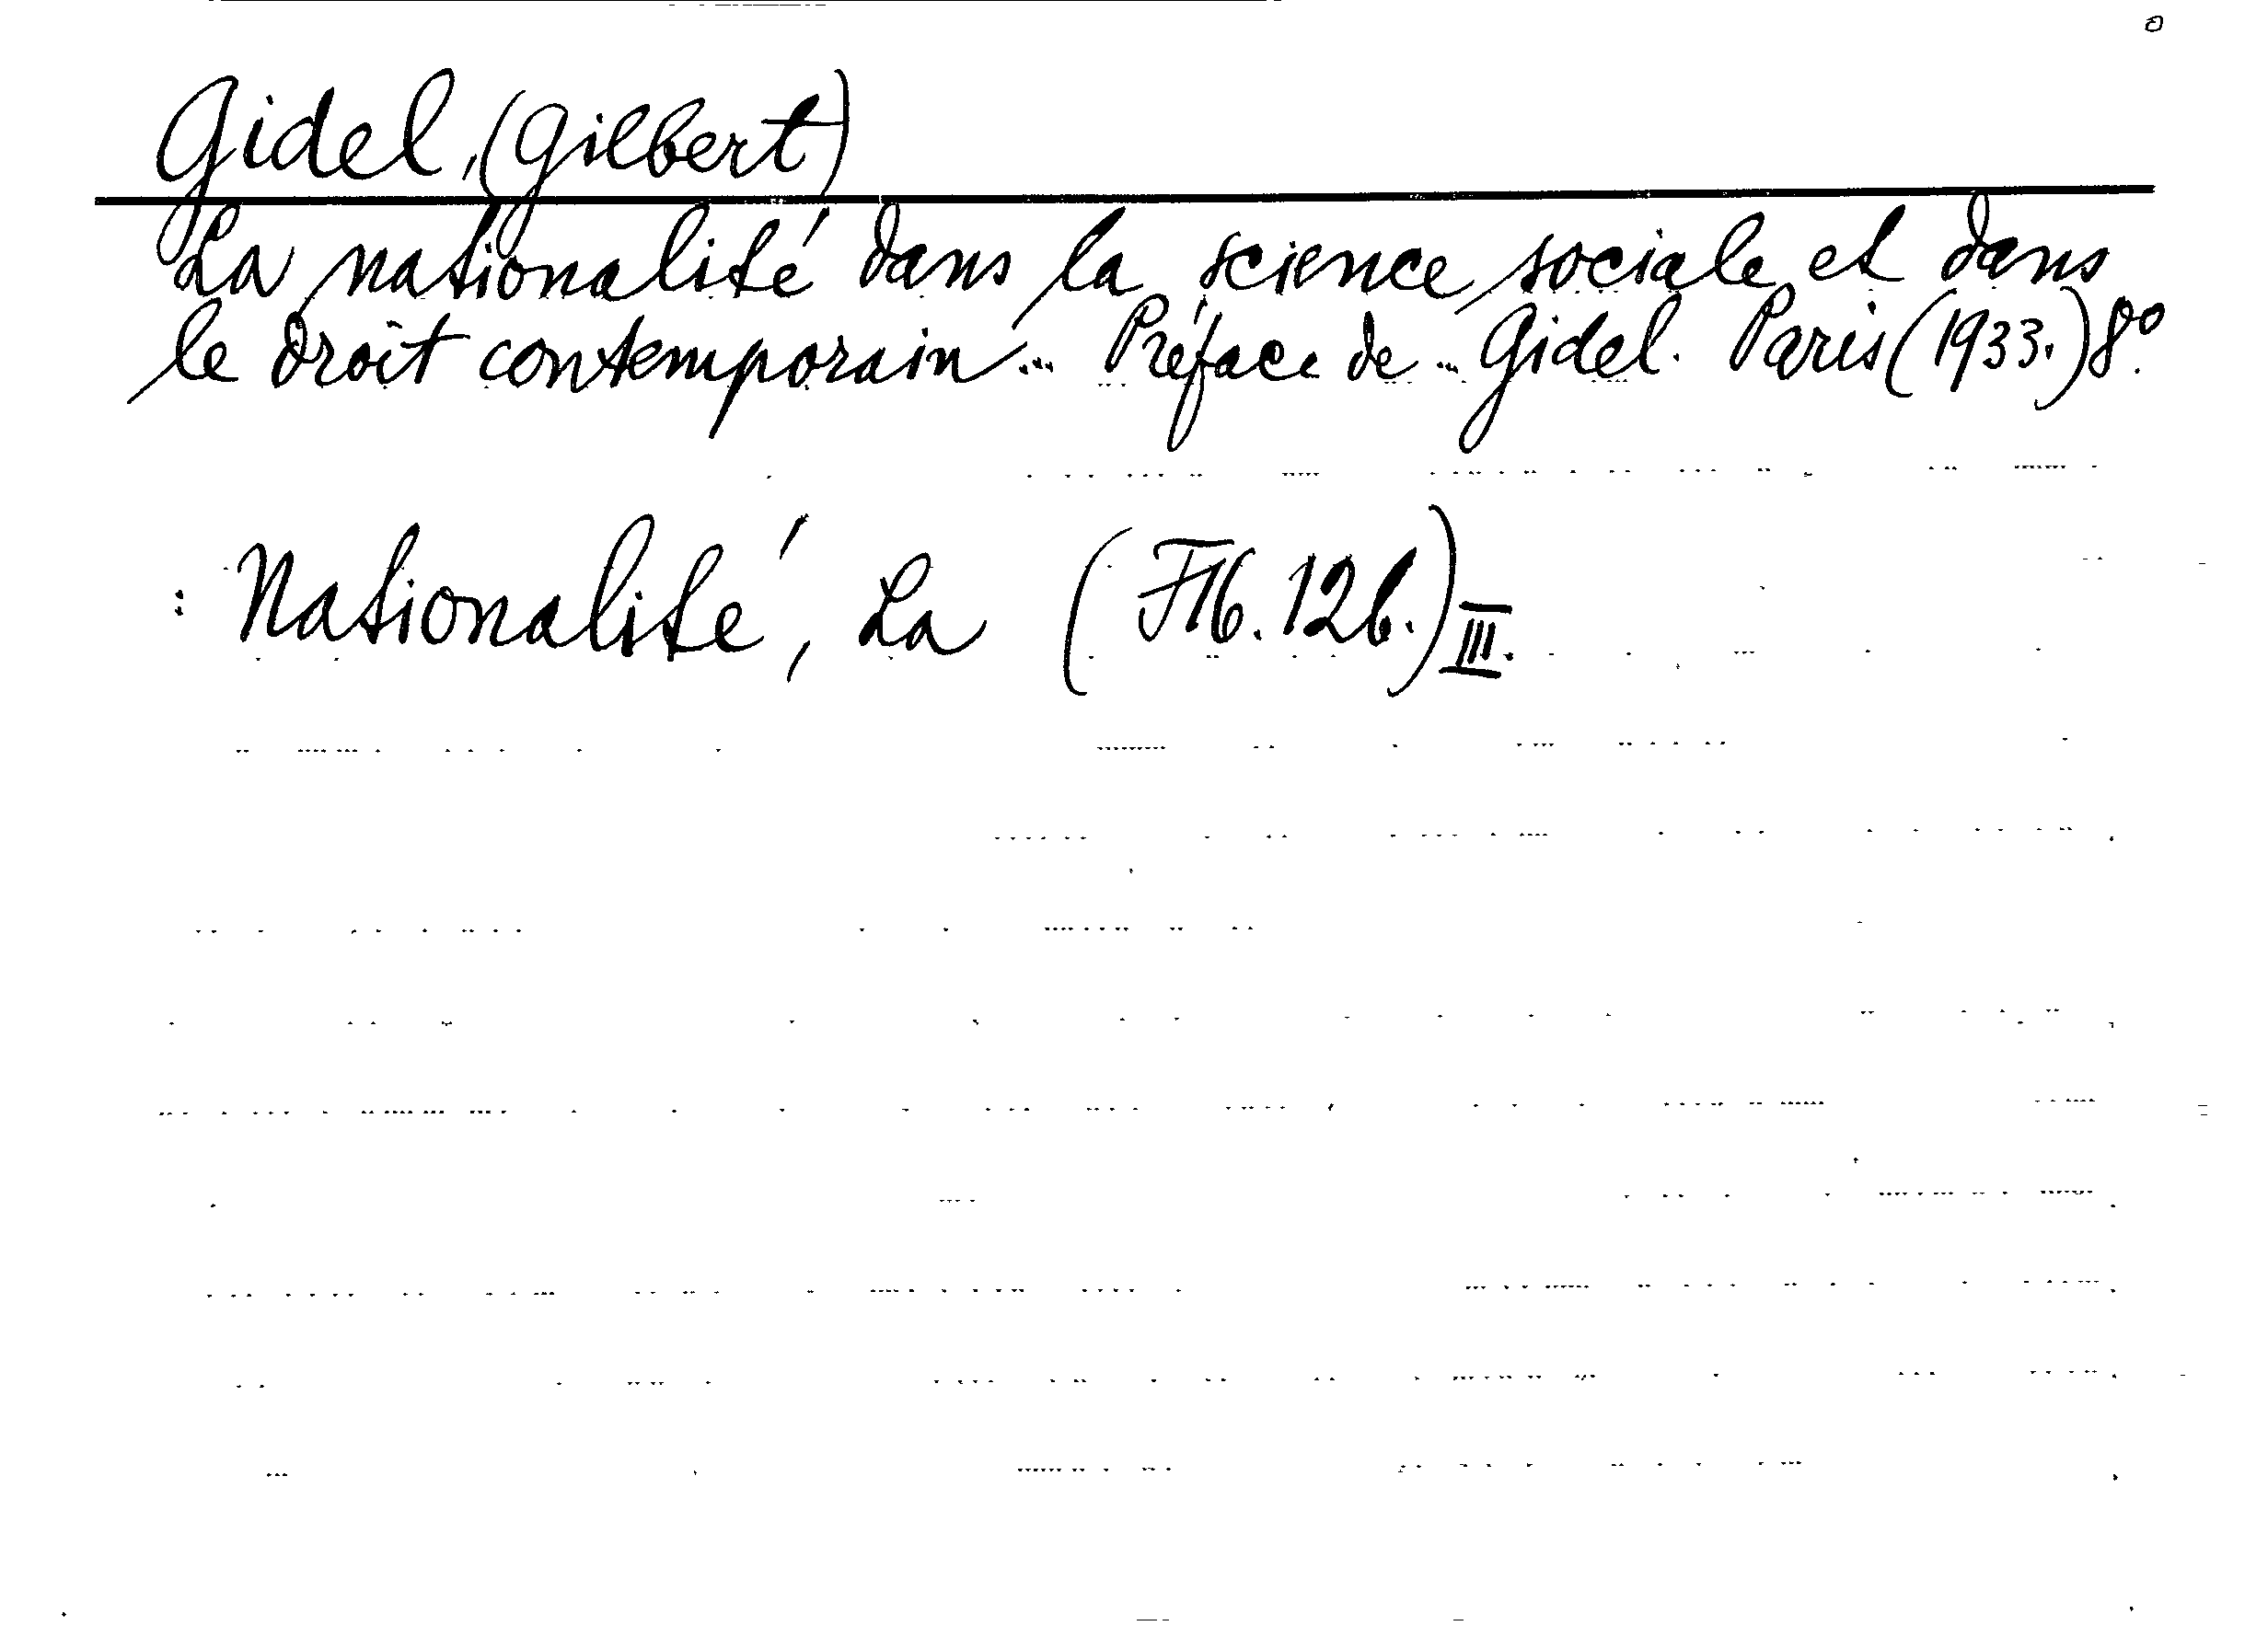 Gidel, (Gilbert)
La nationalité dans la science sociale et dans
le droit contemporain... Préface de ... Gidel. Paris (1933.) 8º.
: Nationalité, La (F16. 12b.) III.